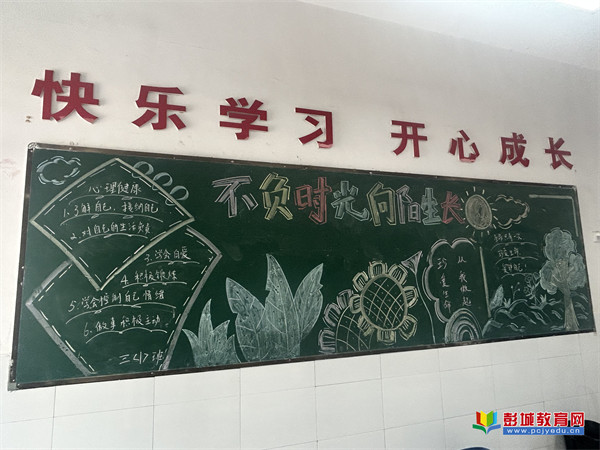 快乐学习 开心成长
不负时光向阳生长
心理健康
1.了解自己,接纳自己
2.对自己的生活负责
3.学会自爱
4.积极锻炼
5.学会控制自己情绪
6.做事积极主动
三<1>班
从我做起
珍爱生命
彭城教育网
www.pcjyedu.cn